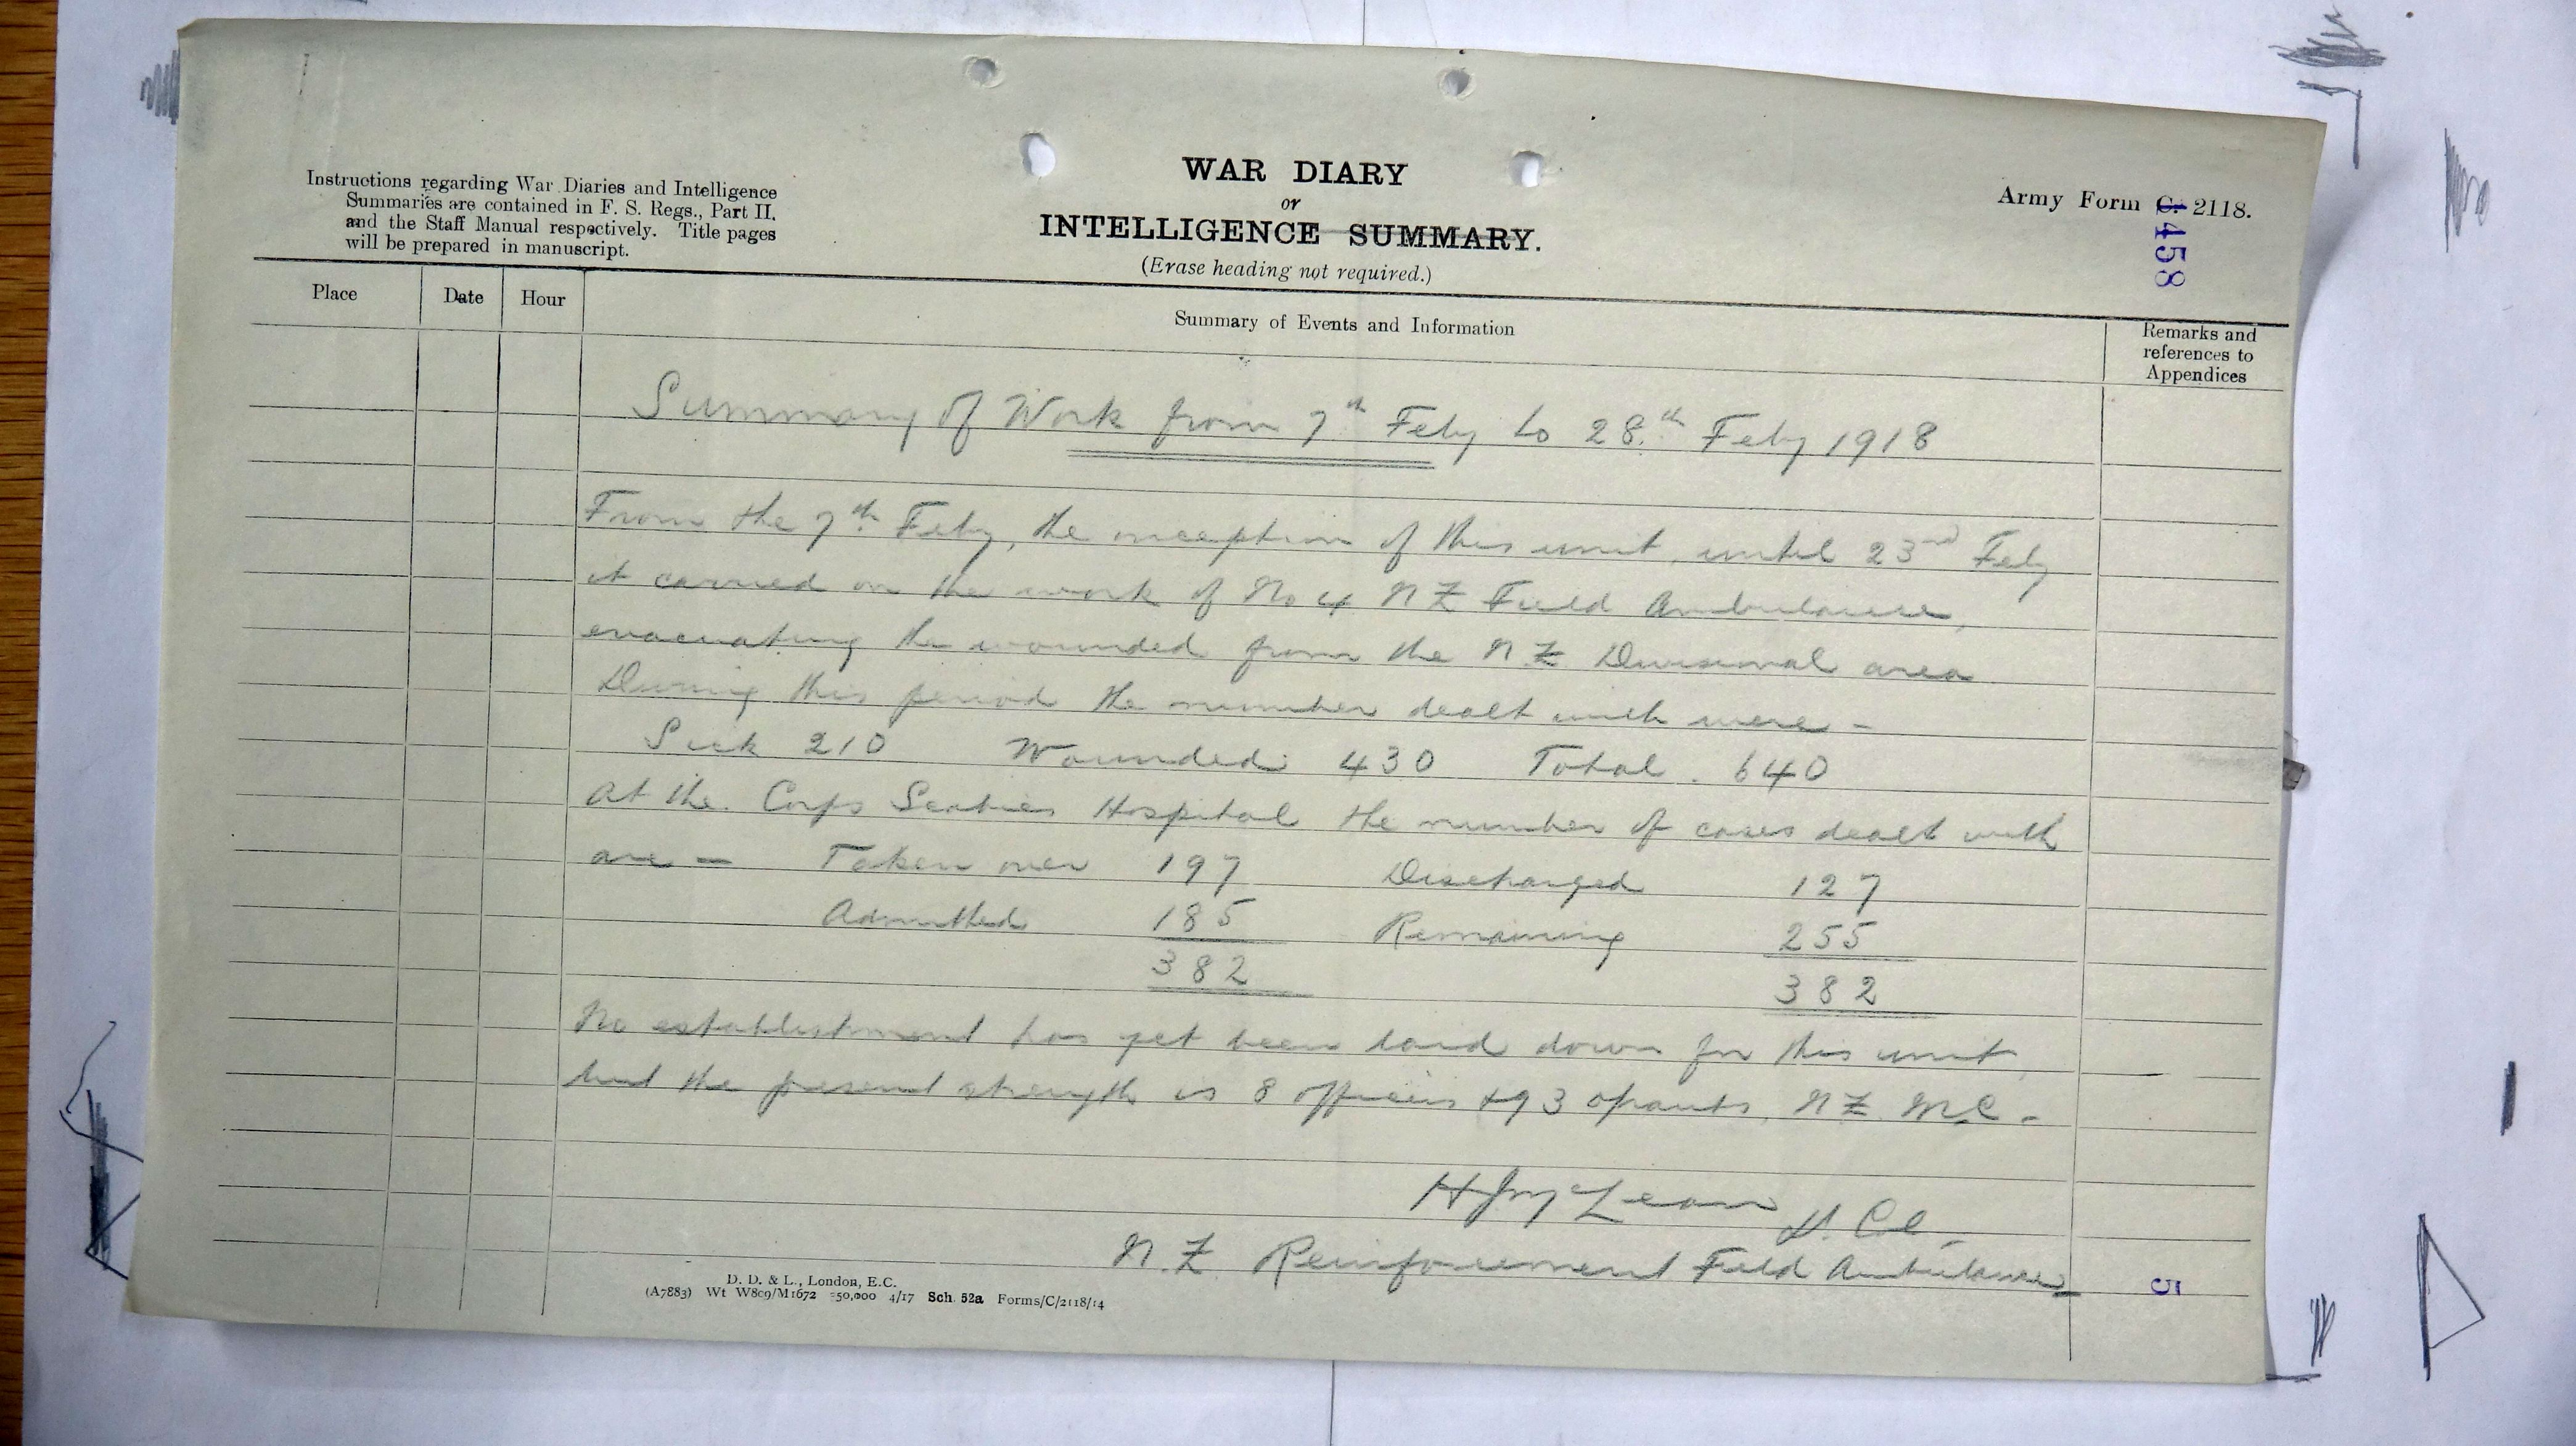 Instructions regarding War Diaries and Intelligence
Summaries are contained in F. S. Regs., Part II.
and the Staff Manual respectively. Title pages
will be prepared in manuscript.
WAR DIARY
or
INTELLIGENCE SUMMARY.
(Erase heading not required.)
Army Form C. 2118.
1458
Place
Date
Hour
Summary of Events and Information
Remarks and
references to
Appendices
Summary of Work from 7th Feby to 28th Feby 1918
From the 7th Feby, the inception of this unit, until 23rd Feby
it carried on the work of No 4 NZ Field Ambulance,
evacuating the wounded from the NZ Divisional area
During this period the number dealt with were -
Sick 210 Wounded 430 Total. 640
At the Corps Scabies Hospital the number of cases dealt with
are - Taken over 197 Discharged 127
Admitted 185 Remaining 255
382 382
No establishment has yet been laid down for this unit,
but the present strength is 8 officers +93 oranks, NZ. MC -
H J McLean Lt. Col.
N.Z. Reinforcement Field Ambulance
D. D. & L., London, E.C.
(A7883) Wt W809/M1672 350,000 4/17 Sch. 52a Forms/C/2118/14
5